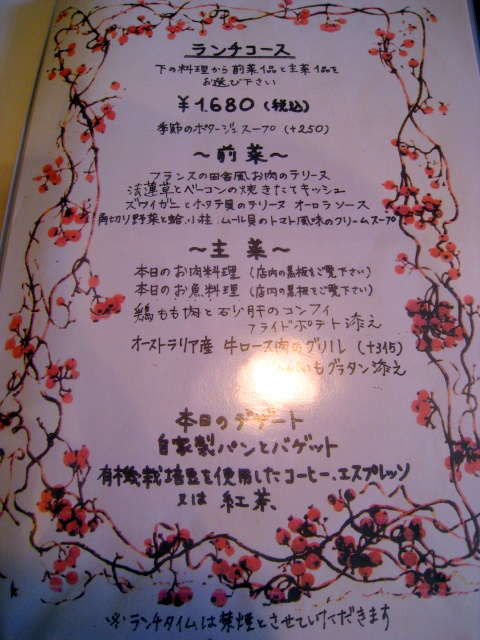 ランチコース
下の料理から前菜1品と主菜1品を
お選び下さい
¥1,680 (税込)
季節のポタージュスープ (+250)
～前菜～
フランスの田舎風お肉のテリーヌ
法蓮草とベーコンの焼きたてキッシュ
ズワイガニとホタテ貝のテリーヌ オーロラソース
角切り野菜と蛤、小柱、ムール貝のトマト風味のクリームスープ
～主菜～
本日のお肉料理 (店内の黒板をご覧下さい)
本日のお魚料理 (店内の黒板をご覧下さい)
鶏もも肉と砂肝のコンフィ
フライドポテト添え
オーストラリア産 牛ロース肉のグリル (+315)
いもグラタン添え
本日のデザート
自家製パンとバゲット
有機栽培豆を使用したコーヒー、エスプレッソ
又は 紅茶、
※ランチタイムは禁煙とさせていただきます